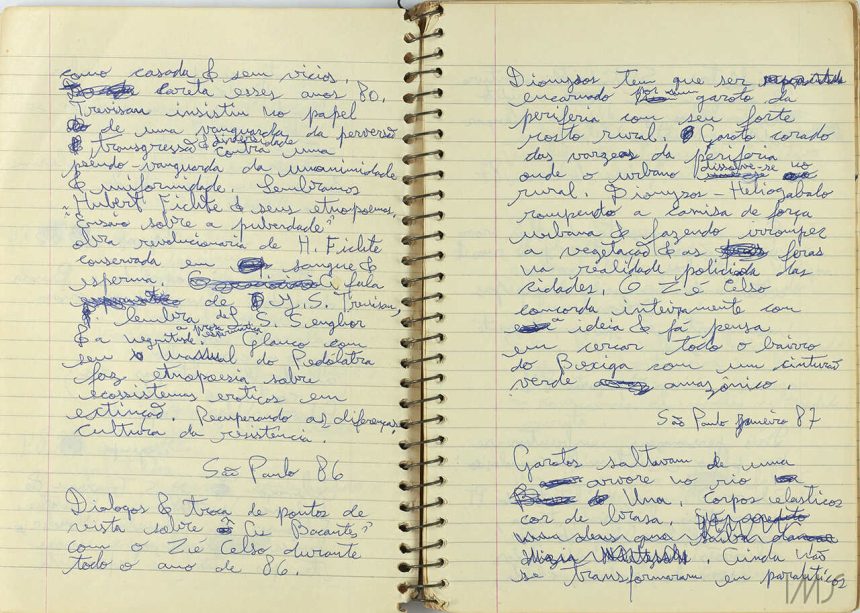 como casada & sem vícios.
careta esses anos 80.
Trevisan insistiu no papel
de uma vanguarda da perversão
& transgressão & diversidade contra uma
pseudo-vanguarda da unanimidade
& uniformidade. Lembramos
Hubert Fichte & seus etnopoemas.
"Ensaio sobre a puberdade"
obra revolucionaria de H. Fichte
conservada em sangue &
esperma. A fala
de J. S. Trevisan,
lembra de L. S. Senghor
& a negritude. a prosa
Glauco com
seu Manual do Pedólatra
faz etnopoesia sobre
ecossistemas eroticos em
extinção. Recuperando as diferenças,
cultura da resistência.
São Paulo 86
Dialogos & troca de pontos de
vista sobre "As Bacantes"
com o Zé Celso durante
todo o ano de 86.
Dionysos tem que ser
encarnado por um garoto da
periferia com seu forte
rosto rural. Garoto corado
das varzeas da periferia
onde o urbano dissolve-se no
rural. Dionysos-Heliogabalo
rompendo a camisa de força
urbana & fazendo irromper
a vegetação & as feras
na realidade policiada das
cidades. O Zé Celso
concorda inteiramente com
a ideia & já pensa
em cercar todo o bairro
do Bexiga com um cinturão
verde amazônico.
São Paulo Janeiro 87
Garotos saltavam de uma
arvore no rio
Una. Corpos elasticos
cor de brasa.
Ainda não
se transformaram em paralíticos
IMS